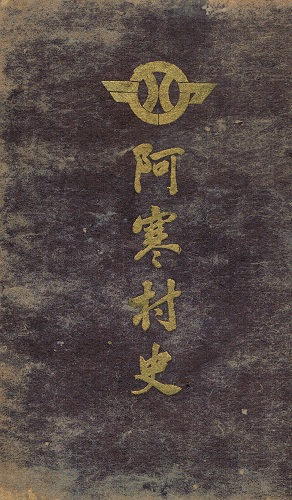 阿寒村史